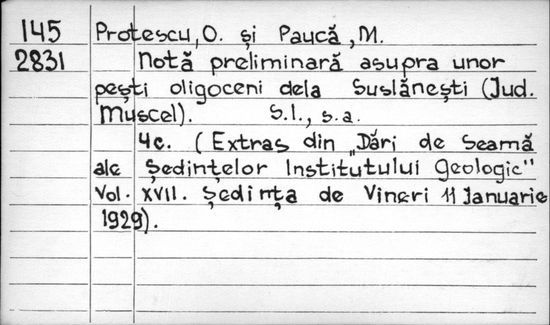 145 Protescu, O. și Paucă, M.
2831 Notă preliminară asupra unor
pești oligoceni dela Suslănești (Jud.
Muscel). S.l., s.a.
4c. (Extras din „Dări de Seamă
ale Ședințelor Institutului Geologic"
Vol. XVII. Ședința de Vineri 11 Januarie
1929).